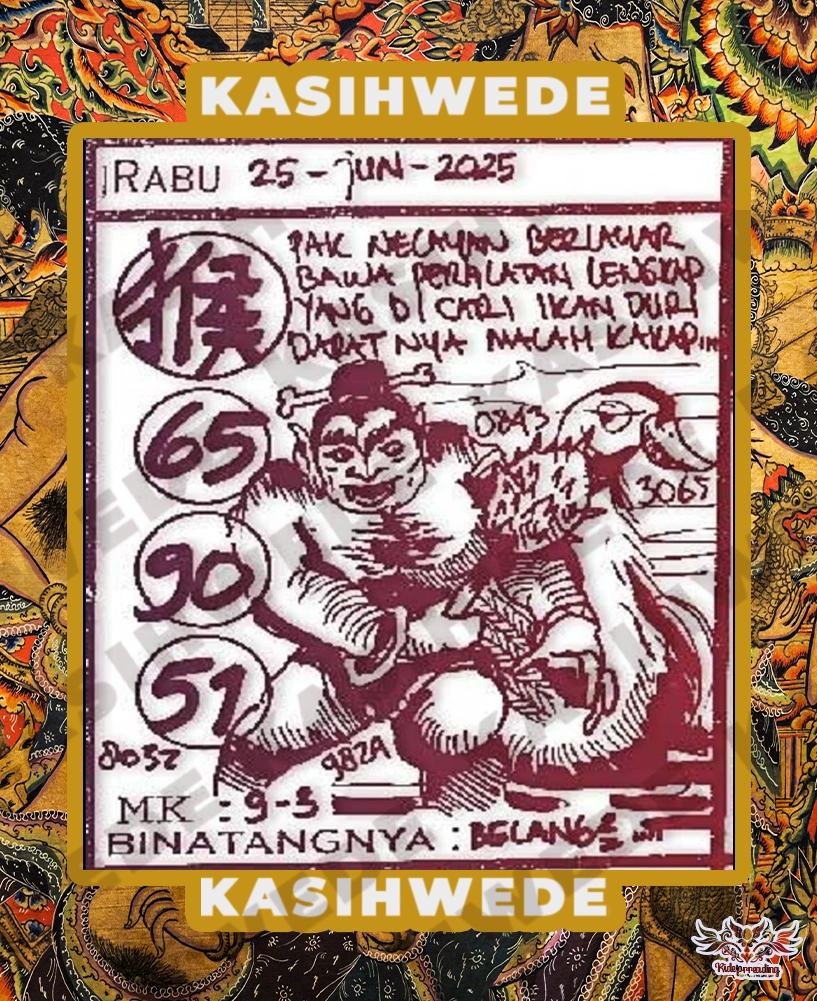 KASIHWEDE
RABU 25-JUN-2025
猴
PAK NELAYAN BERLAYAR
BAWA PERALATAN LENGKAP
YANG DI CARI IKAN DURI
DAPATNYA MALAH KAKAP
65
90
51
0843
3065
8032
M.K : 9-5
BINATANGNYA :
KASIHWEDE